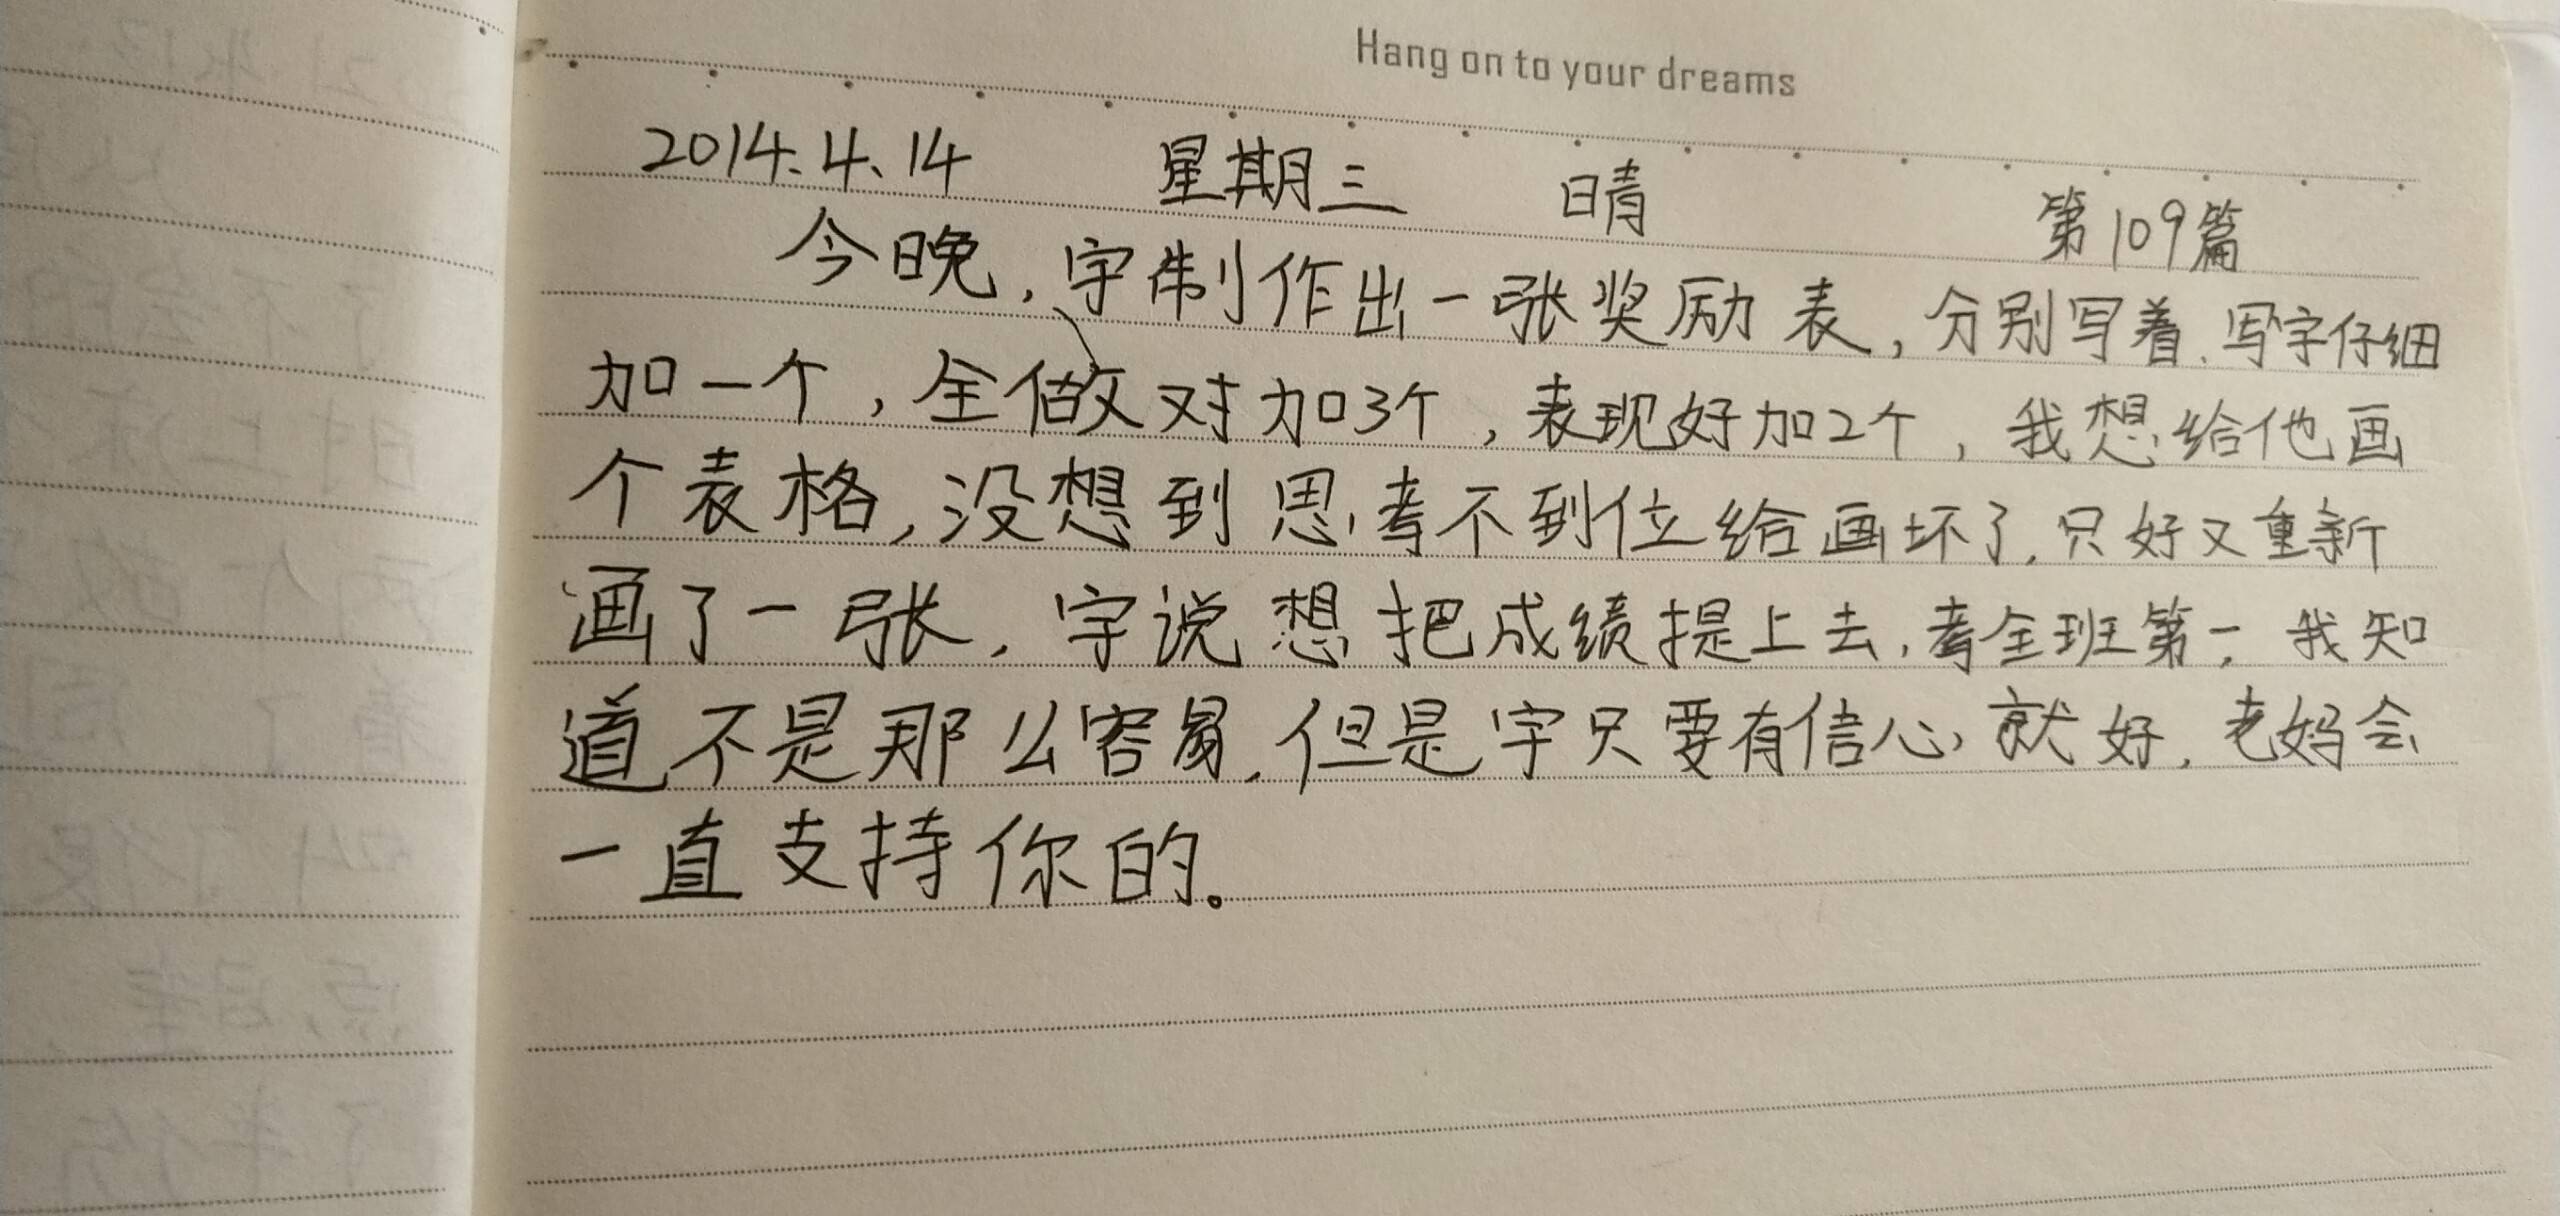 Hang on to your dreams
2014.4.14 星期三 晴 第109篇
今晚,宇制作出一张奖励表,分别写着、写字仔细
加一个,全做对加3个,表现好加2个,我想给他画
个表格,没想到思考不到位给画坏了,只好又重新
画了一张,宇说想把成绩提上去,考全班第一,我知
道不是那么容易,但是宇只要有信心就好,老妈会
一直支持你的。